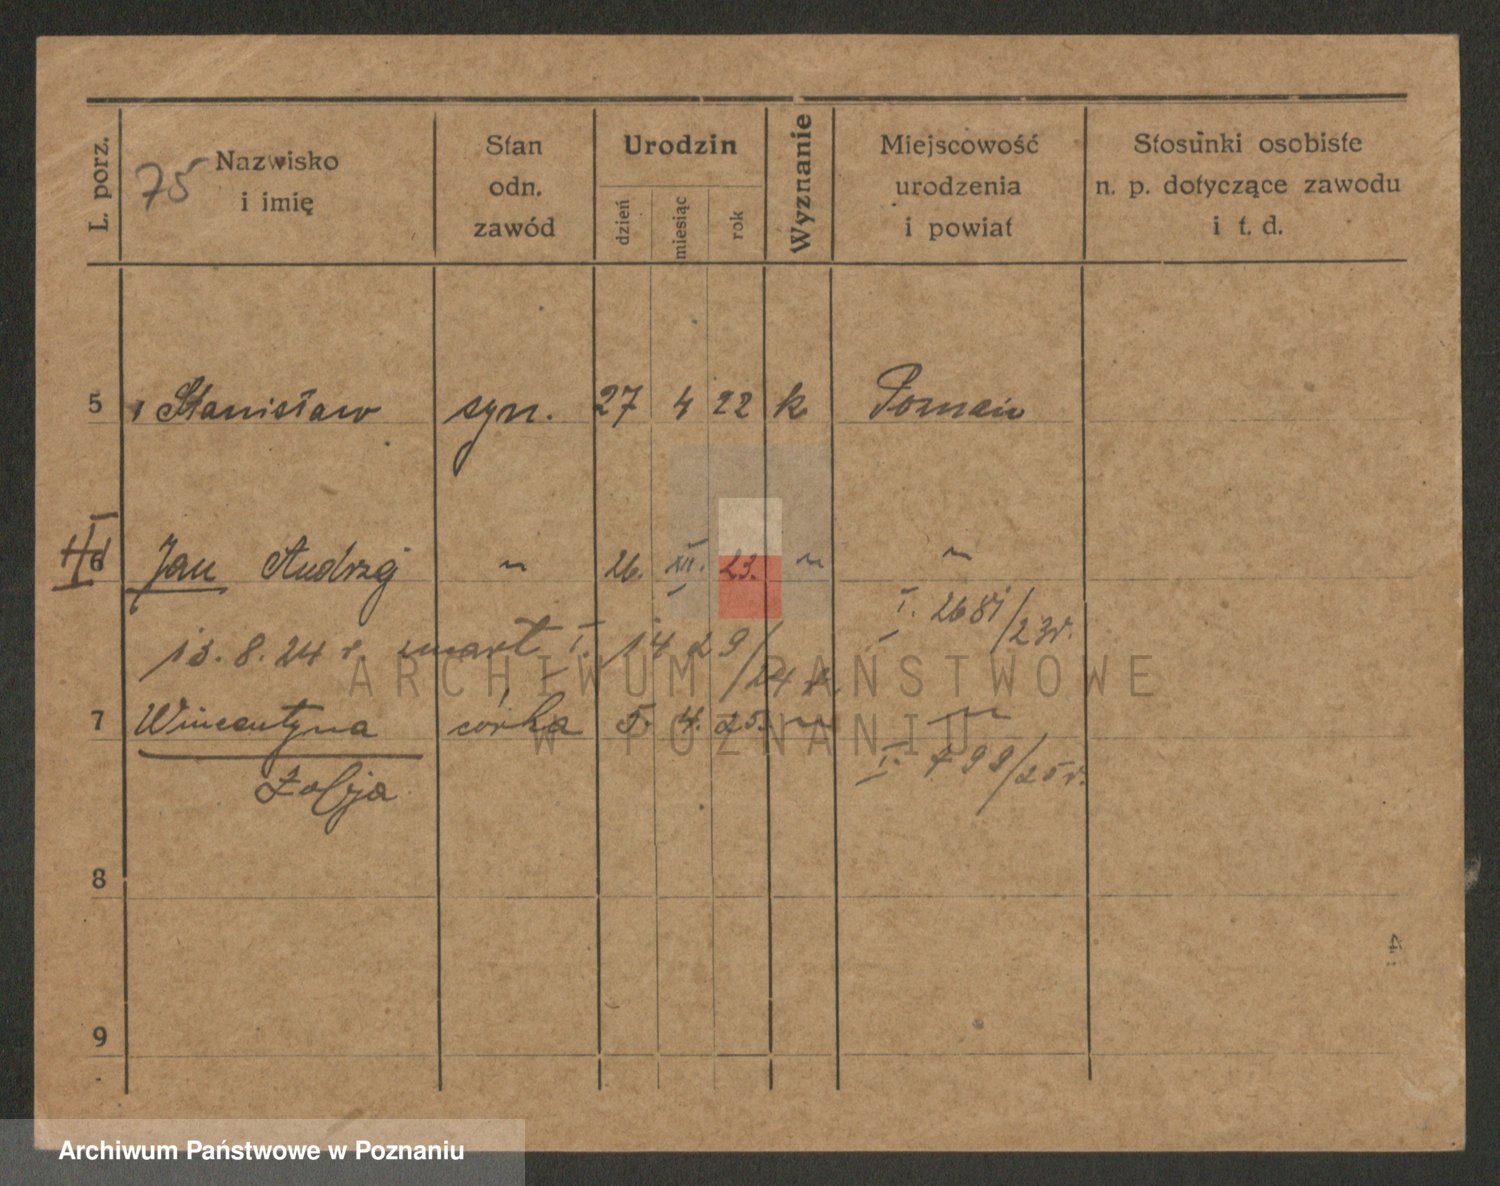 L. porz.
75 Nazwisko
i imię
Stan
odn.
zawód
Urodzin
dzień
miesiąc
rok
Wyznanie
Miejscowość
urodzenia
i powiat
Stosunki osobiste
n. p. dotyczące zawodu
i t. d.
5 Stanisław syn. 27 4 22 k. Poznań
6 Jan Andrzej " 26. XII. 23. " "
I. 2681/23r.
13. 8. 24 r. zmarł I. 1429/24 r.
7 Wincentyna córka 5. 4. 25. " "
Zofja
I. 798/25r.
8
9
ARCHIWUM PAŃSTWOWE
W POZNANIU
Archiwum Państwowe w Poznaniu